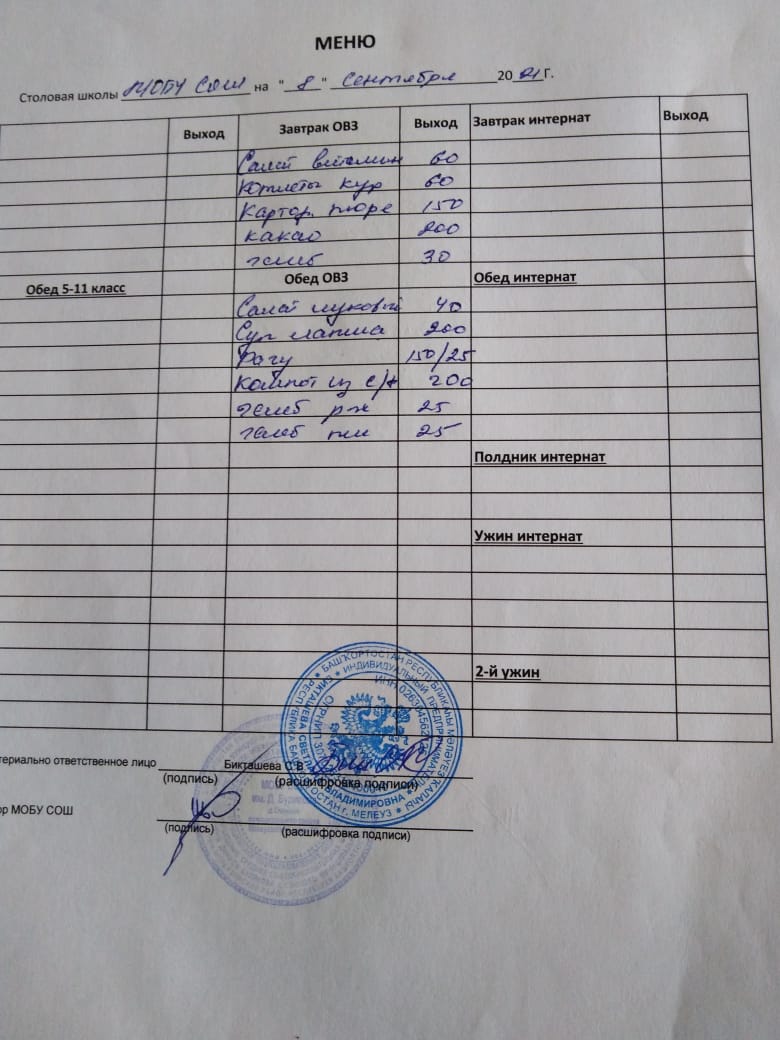 МЕНЮ
Столовая школы МОБУ СОШ на "8" Сентября 2021 г.
Выход Завтрак ОВЗ Выход Завтрак интернат Выход
Салат витамин 60
Котлеты кур 60
Картоф. пюре 150
какао 200
хлеб 30
Обед 5-11 класс Обед ОВЗ Обед интернат
Салат луковый 40
Суп лапша 200
Рагу 150/25
Компот из с/ф 200
хлеб рж 25
хлеб пш 25
Полдник интернат
Ужин интернат
2-й ужин
БАШҠОРТОСТАН РЕСПУБЛИКАҺЫ МӘЛӘҮЕЗ ҠАЛАҺЫ
РЕСПУБЛИКА БАШКОРТОСТАН г. МЕЛЕУЗ
ИНДИВИДУАЛЬНЫЙ ПРЕДПРИНИМАТЕЛЬ
БИКТАШЕВА СВЕТЛАНА ВЛАДИМИРОВНА
териально ответственое лицо Бикташева С.В
(подпись) (расшифровка подписи)
ор МОБУ СОШ
(подпись) (расшифровка подписи)